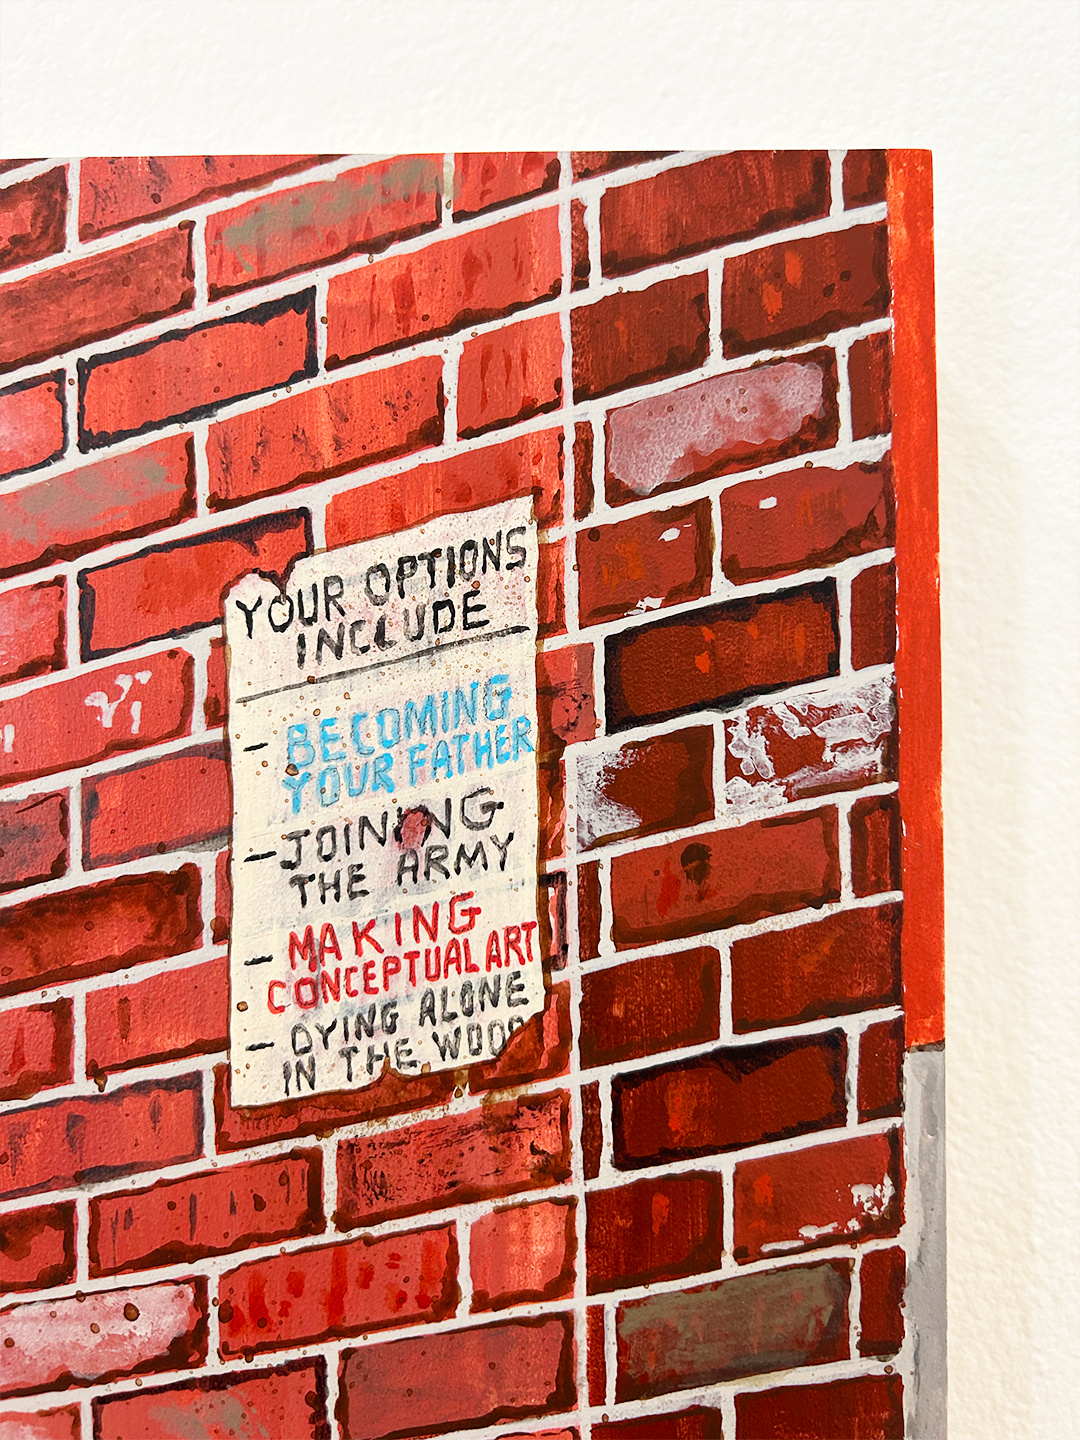 YOUR OPTIONS
INCLUDE
- BECOMING
YOUR FATHER
- JOINING
THE ARMY
- MAKING
CONCEPTUAL ART
- DYING ALONE
IN THE WOOD